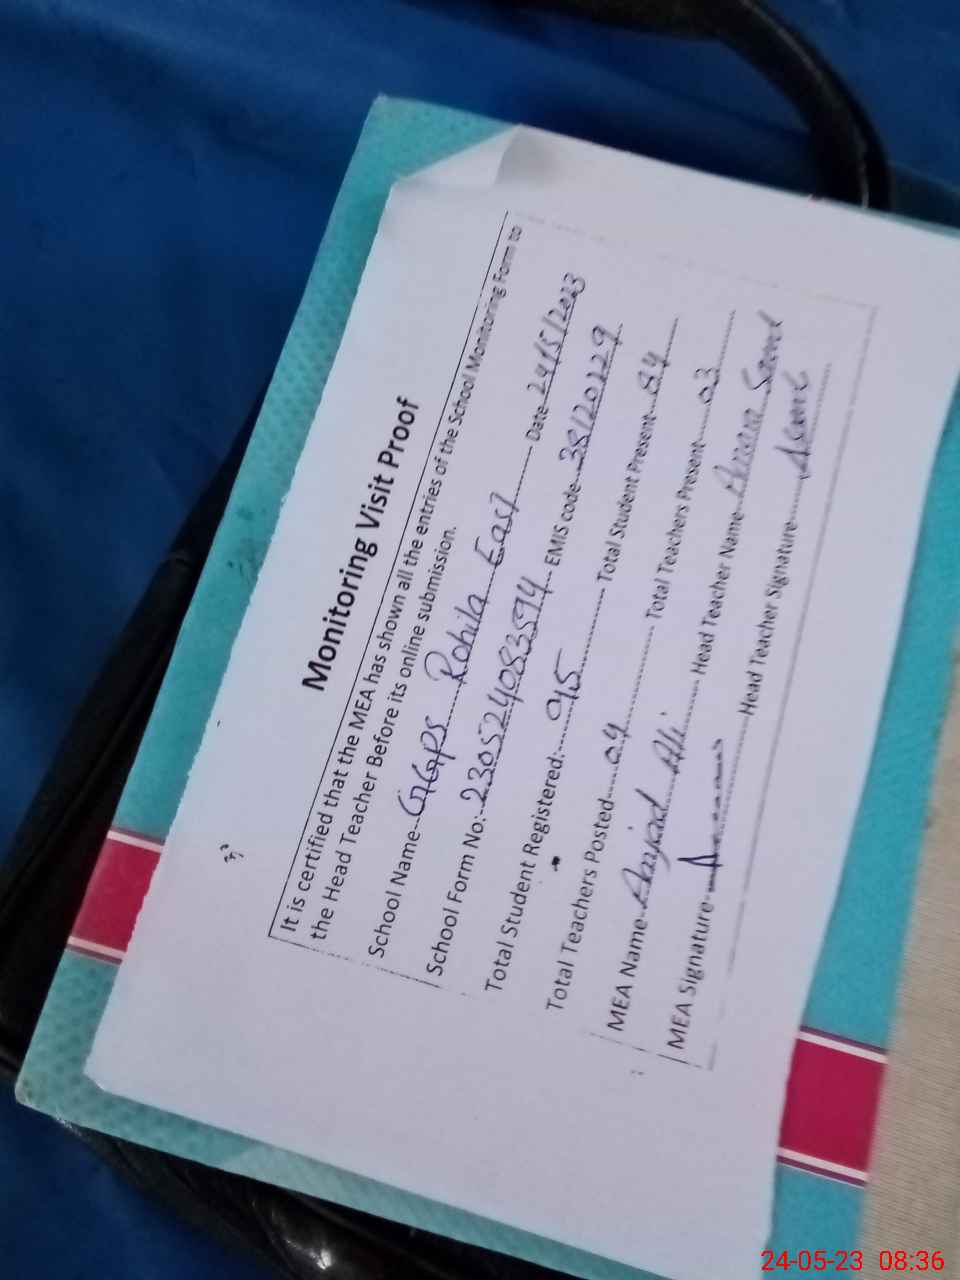 Monitoring Visit Proof
It is certified that the MEA has shown all the entries of the School Monitoring Form to
the Head Teacher Before its online submission.
School Name GGPS Rohila East Date 24/5/2023
School Form No: 230524083594 EMIS code 38120229
Total Student Registered: 95 Total Student Present 84
Total Teachers Posted 04 Total Teachers Present 03
MEA Name Amjad Ali Head Teacher Name Saeed
MEA Signature Head Teacher Signature
24-05-23 08:36